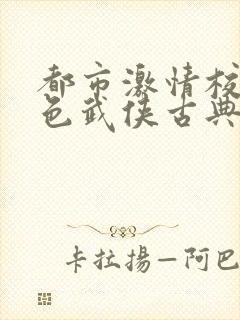 都市激情校
色武侠古典
卡拉揚—阿巴